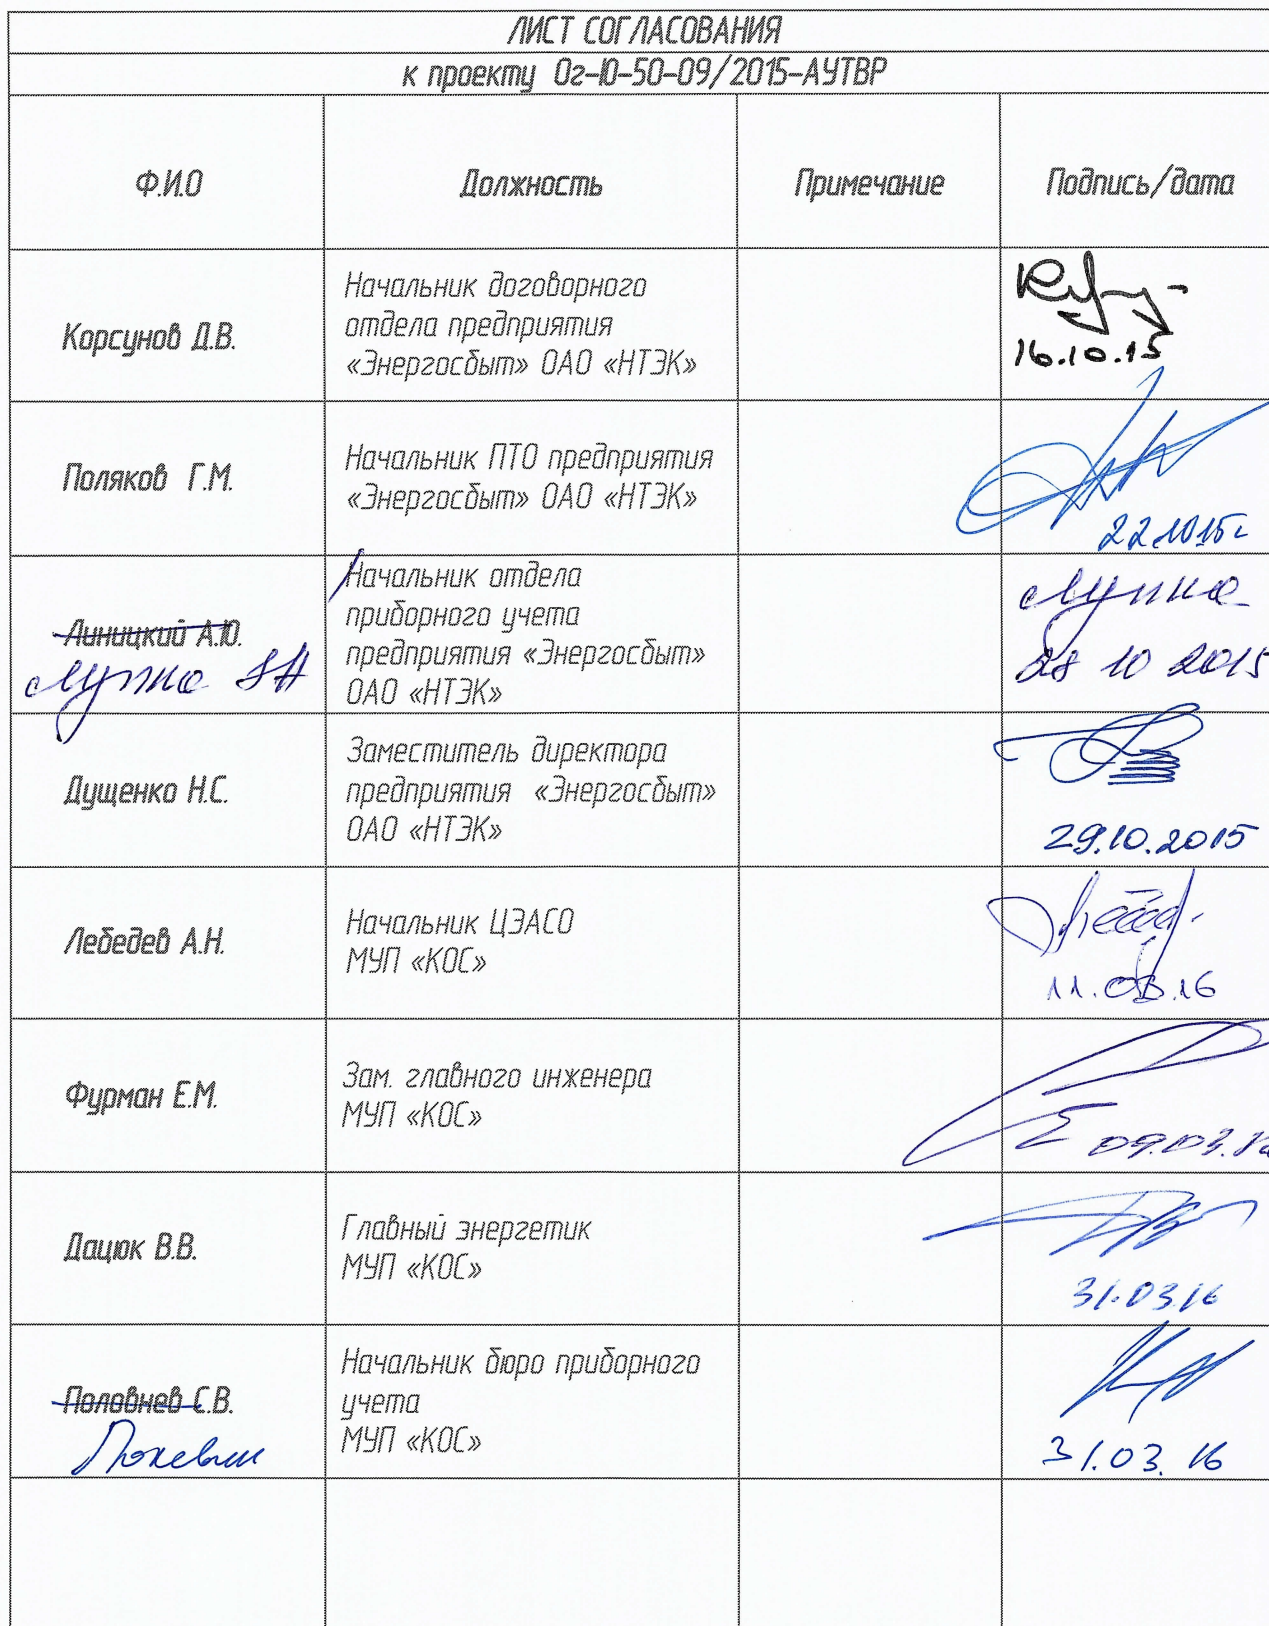 ЛИСТ СОГЛАСОВАНИЯ
к проекту Ог-Ю-50-09/2015-АУТВР
Ф.И.О
Должность
Примечание
Подпись/дата
Корсунов Д.В.
Начальник договорного
отдела предприятия
«Энергосбыт» ОАО «НТЭК»
16.10.15
Поляков Г.М.
Начальник ПТО предприятия
«Энергосбыт» ОАО «НТЭК»
22.10.15г
Линицкий А.Ю.
Начальник отдела
приборного учета
предприятия «Энергосбыт»
ОАО «НТЭК»
28 10 2015
Дущенко Н.С.
Заместитель директора
предприятия «Энергосбыт»
ОАО «НТЭК»
29.10.2015
Лебедев А.Н.
Начальник ЦЭАСО
МУП «КОС»
11.03.16
Фурман Е.М.
Зам. главного инженера
МУП «КОС»
09.03.16
Дацюк В.В.
Главный энергетик
МУП «КОС»
31.03.16
Половнев С.В.
Начальник бюро приборного
учета
МУП «КОС»
31.03.16